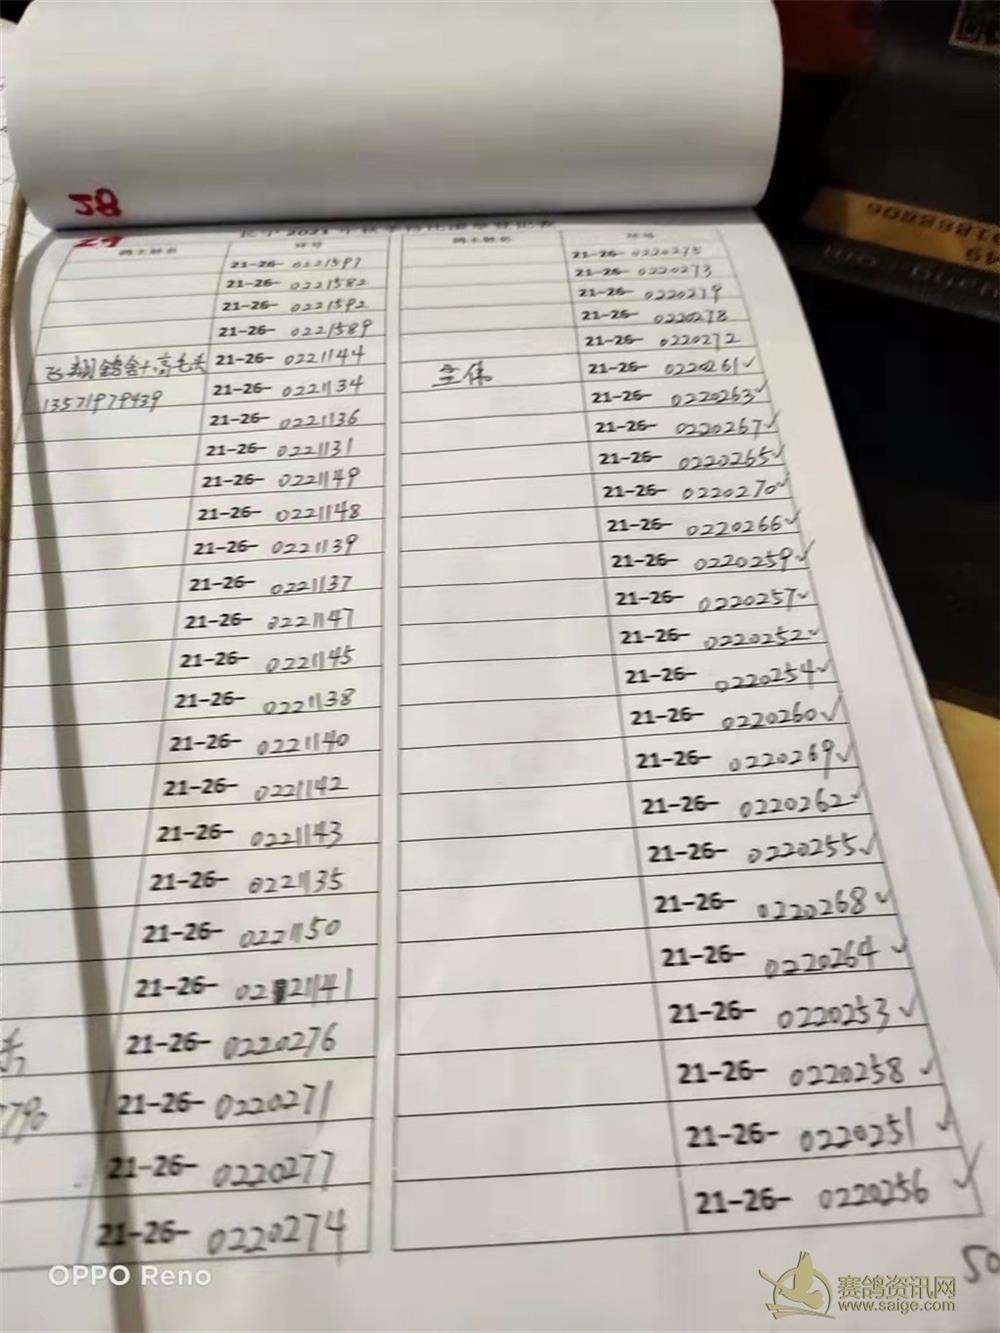 28
29
鸽主姓名 环号
21-26-0221597
21-26-0221582
21-26-0221592
21-26-0221589
飞翔鸽舍+高毛头 21-26-0221144
13571979439 21-26-0221134
21-26-0221136
21-26-0221131
21-26-0221149
21-26-0221148
21-26-0221139
21-26-0221137
21-26-0221147
21-26-0221145
21-26-0221138
21-26-0221140
21-26-0221142
21-26-0221143
21-26-0221135
21-26-0221150
21-26-0221141
21-26-0220276
21-26-0220271
21-26-0220277
21-26-0220274
鸽主姓名 环号
21-26-0220275
21-26-0220273
21-26-0220279
21-26-0220278
21-26-0220272
21-26-0220261✓
21-26-0220263✓
21-26-0220267✓
21-26-0220265✓
21-26-0220270✓
21-26-0220266✓
21-26-0220259✓
21-26-0220257✓
21-26-0220252✓
21-26-0220254✓
21-26-0220260✓
21-26-0220269✓
21-26-0220262✓
21-26-0220255✓
21-26-0220268✓
21-26-0220264✓
21-26-0220253✓
21-26-0220258✓
21-26-0220251✓
21-26-0220256✓
50
OPPO Reno
赛鸽资讯网
www.saige.com